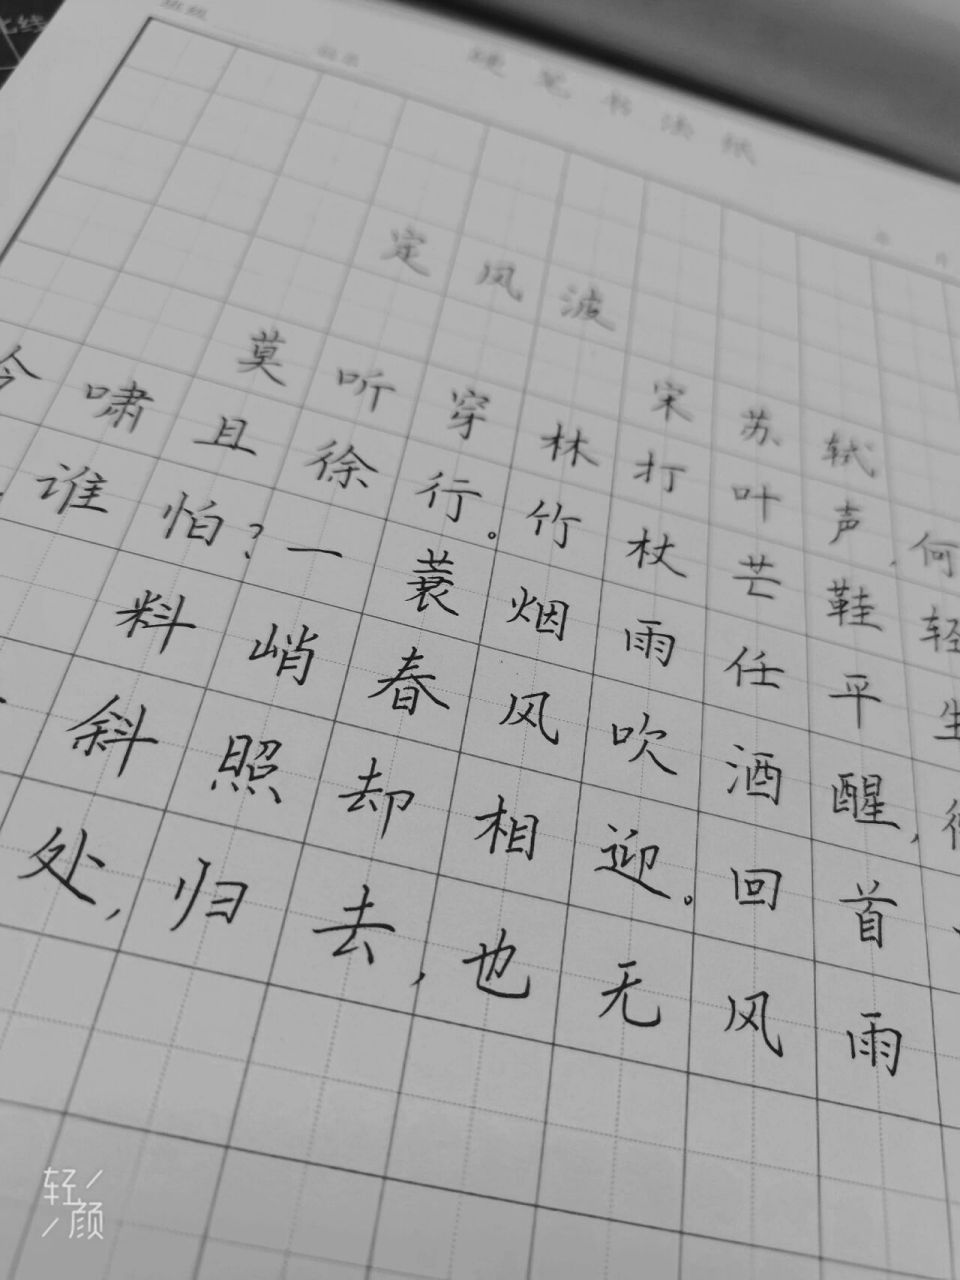 硬笔书法纸
定风波
宋 苏轼
莫听穿林打叶声,何
吟啸且徐行。竹杖芒鞋轻
谁怕?一蓑烟雨任平生
料峭春风吹酒醒,微
斜照却相迎。回首
处,归去,也无风雨
轻颜